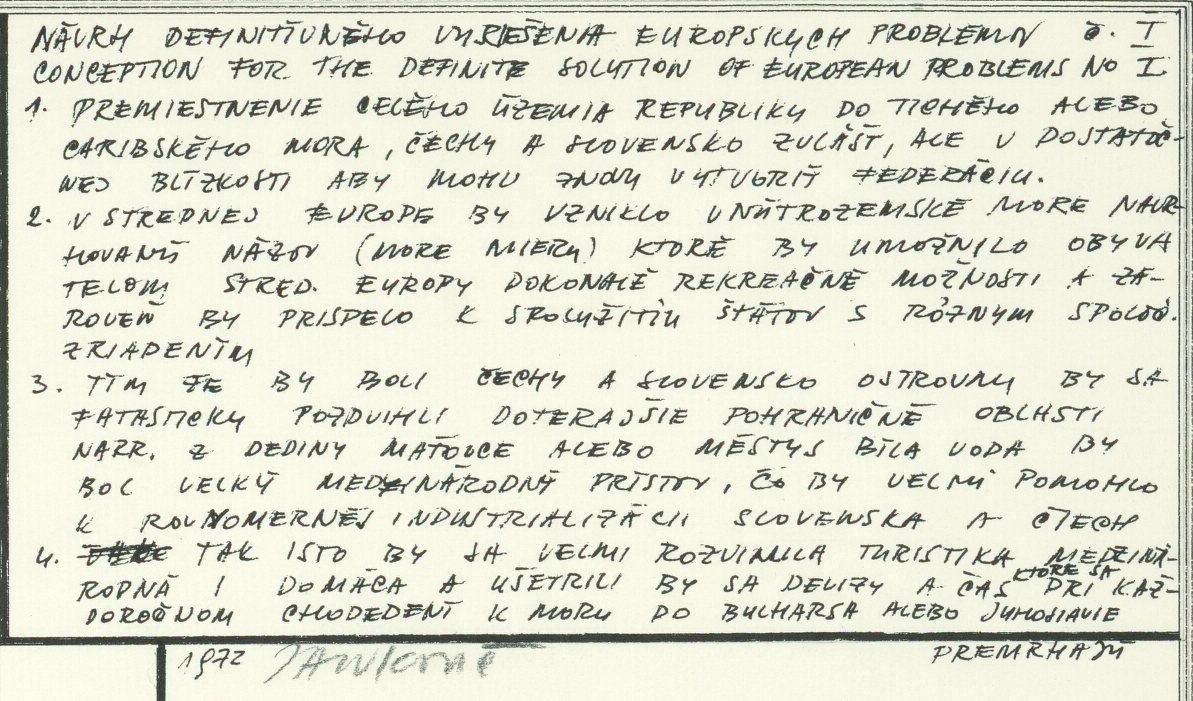 NÁVRH DEFINITÍVNÉHO VYRIEŠENIA EUROPSKYCH PROBLEMOV Č. I
CONCEPTION FOR THE DEFINITE SOLUTION OF EUROPEAN PROBLEMS NO I
1. PREMIESTNENIE CELÉHO ÚZEMIA REPUBLIKY DO TICHÉHO ALEBO
CARIBSKÉHO MORA, ČECHY A SLOVENSKO ZVLÁŠŤ, ALE V DOSTATOČ-
NEJ BLÍZKOSTI ABY MOHLI ZNOVU VYTVORIŤ FEDERÁCIU.
2. V STREDNEJ EUROPE BY VZNIKLO VNÚTROZEMSKÉ MORE NAVR-
HOVANÝ NÁZOV (MORE MIERU) KTORÉ BY UMOŽNILO OBYVA
TEĽOM STRED. EUROPY DOKONALÉ REKREAČNÉ MOŽNOSTI A ZÁ-
ROVEŇ BY PRISPELO K SPOLUŽITIU ŠTÁTOV S RÔZNYM SPOLOČ.
ZRIADENÍM
3. TÝM ŽE BY BOLI ČECHY A SLOVENSKO OSTROVMI BY SA
FATASTICKY POZDVIHLI DOTERAJŠIE POHRANIČNÉ OBLASTI
NAPR. Z DEDINY MAŤOVCE ALEBO MĚSTYS BÍLA VODA BY
BOL VELKÝ MEDZINÁRODNÝ PRÍSTAV, ČO BY VELMI POMOHLO
K ROVNOMERNEJ INDUSTRIALIZÁCII SLOVENSKA A ČIECH
4. TAK ISTO BY SA VELMI ROZVINULA TURISTIKA MEDZINÁ-
RODNÁ I DOMÁCA A UŠETRILI BY SA DEVIZY A ČAS KTORÉ SA PRI KAŽ-
DOROČNOM CHODEDENÍ K MORU DO BULHARSA ALEBO JUHOSLAVIE
PREMŔHAJÚ
1972